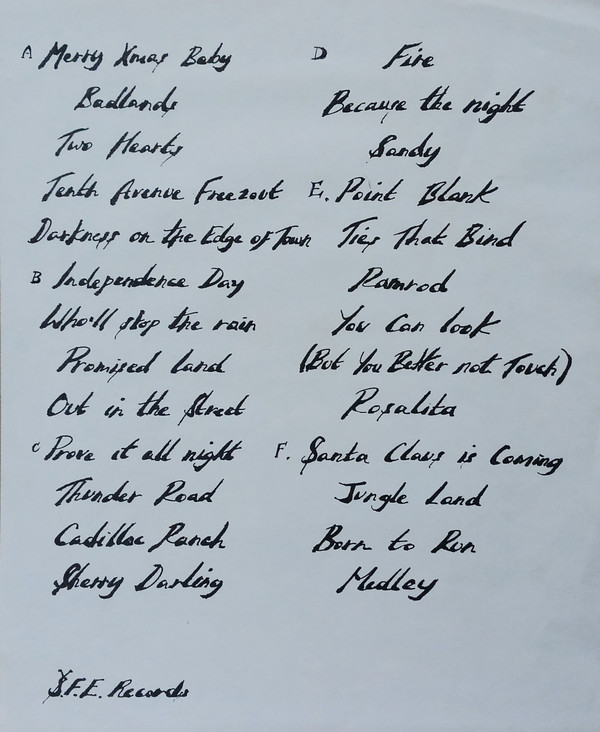 A Merry Xmas Baby
Badlands
Two Hearts
Tenth Avenue Freezout
Darkness on the Edge of Town
B Independence Day
Who'll stop the rain
Promised Land
Out in the Street
C Prove it all night
Thunder Road
Cadillac Ranch
Sherry Darling
D Fire
Because the night
Sandy
E. Point Blank
Ties That Bind
Ramrod
You Can look
(But You Better not Touch)
Rosalita
F. Santa Claus is Coming
Jungle Land
Born to Run
Medley
S.F.E. Records